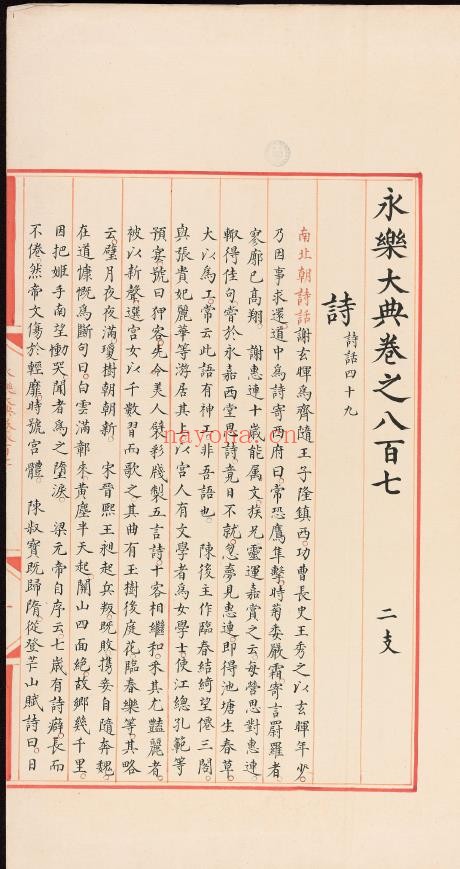 永樂大典卷之八百七 二支
詩 詩話四十九
南北朝詩話謝玄暉為齊隨王子隆鎮西功曹長史王秀之以玄暉年少
乃因事求還道中為詩寄西府曰常恐鷹隼擊時菊委嚴霜寄言罻羅者
寥廓已高翔 謝惠連十歲能屬文族兄靈運嘉賞之云每營思對惠連
輒得佳句嘗於永嘉西堂思詩竟日不就忽夢見惠連即得池塘生春草
大以為工常云此語有神工非吾語也 陳後主作臨春結綺望僊三閣
與張貴妃麗華等游居其上以宮人有文學者為女學士使江總孔範等
預宴號曰狎客先令美人襞彩牋製五言詩十客相繼和采其尤豔麗者
被以新聲選宮女以千數習而歌之其曲有玉樹後庭花臨春樂等其略
云璧月夜夜滿瓊樹朝朝新 宋晉熙王昶起兵叛既敗攜妾自隨奔魏
在道慷慨為斷句曰白雲滿鄣來黃塵半天起關山四面絕故鄉幾千里
因把姬手南望慟哭聞者為之墮淚 梁元帝自序云七歲有詩癖長而
不倦然帝文傷於輕靡時號宮體 陳叔寶既歸隋從登芒山賦詩曰日
nayona.cn